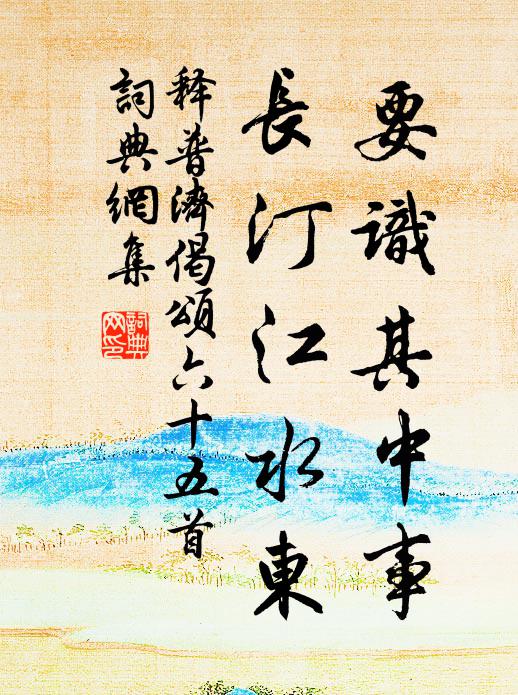 要識其中事
長汀江水東
释普濟偈頌六十五首
詞典網集
詞典
网印